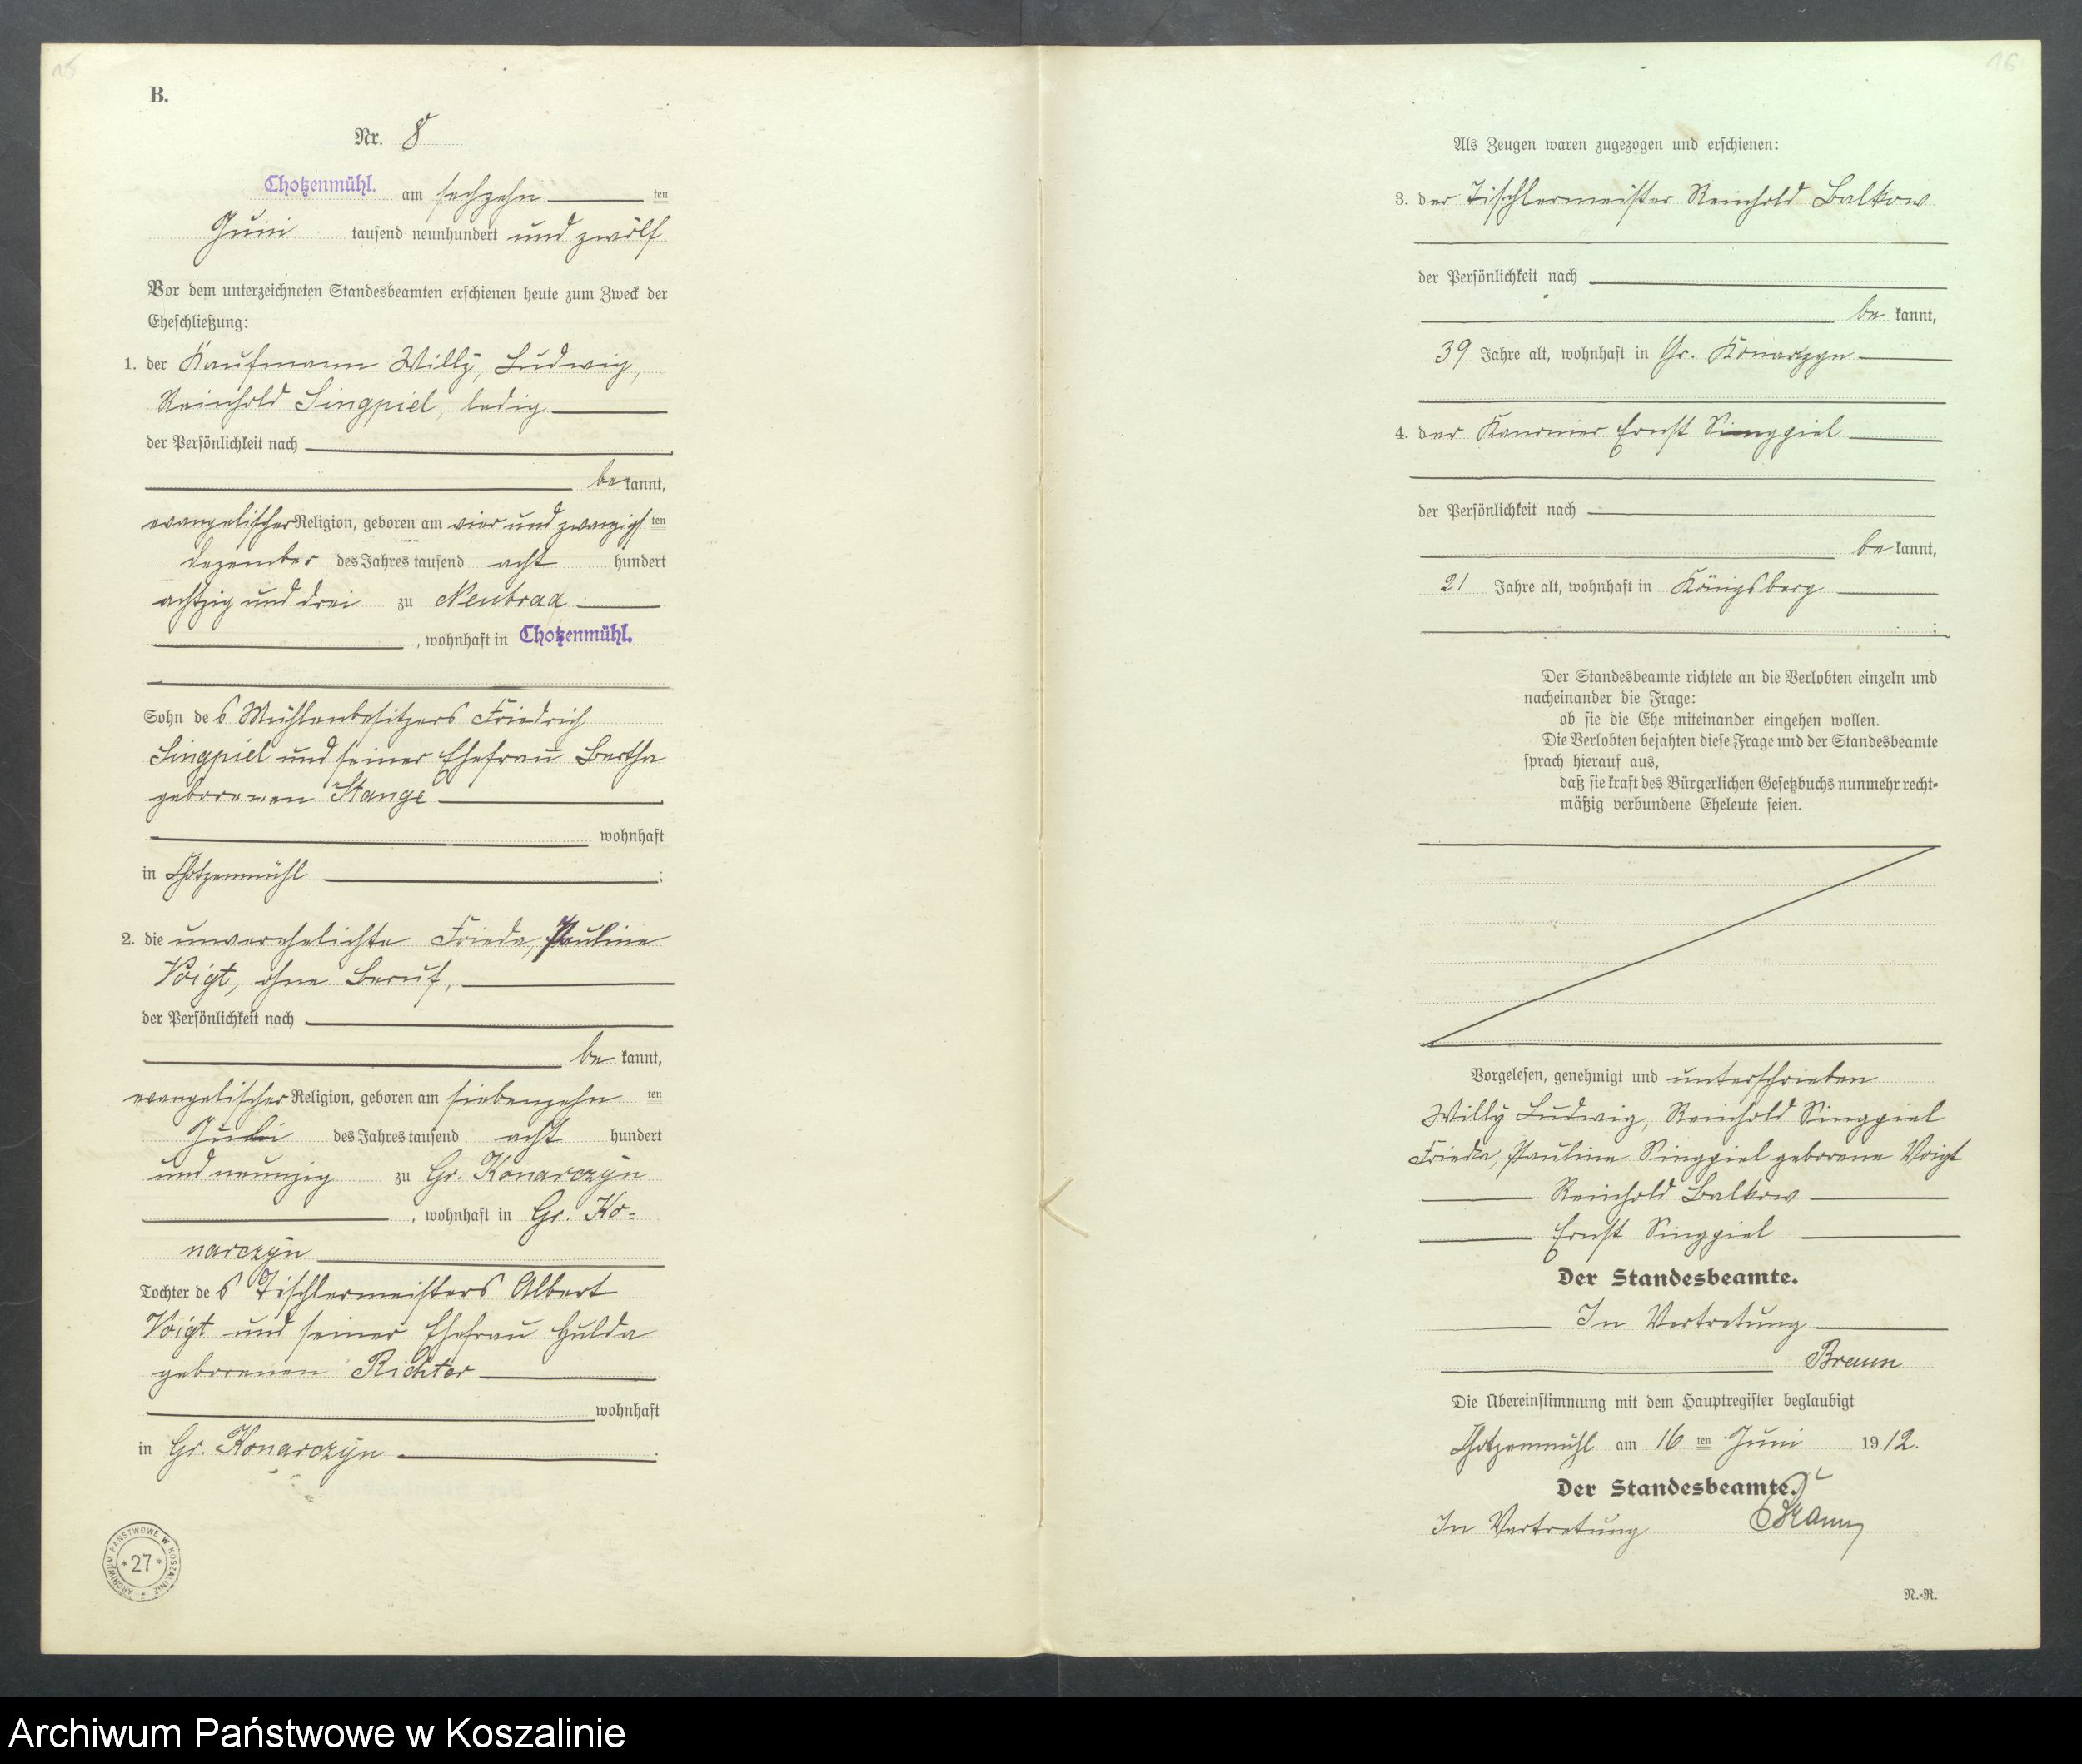 B.
Nr. 8
Chotzenmühl. am sechzehn ten
Juni tausend neunhundert und zwölf
Vor dem unterzeichneten Standesbeamten erschienen heute zum Zweck der
Eheschließung:
1. der Kaufmann Willy, Ludwig,
Reinhold Singpiel, ledig
der Persönlichkeit nach
be kannt,
evangelischer Religion, geboren am vier und zwanzigs ten
Dezember des Jahres tausend acht hundert
achtzig und drei zu Neubraa
, wohnhaft in Chotzenmühl.
Sohn des Mühlenbesitzers Friedrich
Singpiel und seiner Ehefrau Bertha
geborenen Stange
wohnhaft
in Chotzenmühl ;
2. die unverehelichte Frieda, Pauline
Voigt, ohne Beruf,
der Persönlichkeit nach
be kannt,
evangelischer Religion, geboren am siebenzehn ten
Juli des Jahres tausend acht hundert
und neunzig zu Gr. Konarczyn
, wohnhaft in Gr. Ko=
narczyn
Tochter des Tischlermeisters Albert
Voigt und seiner Ehefrau Hulda
geborenen Richter
wohnhaft
in Gr. Konarczyn .
ARCHIWUM PAŃSTWOWE W KOSZALINIE
* 27 *
16
Als Zeugen waren zugezogen und erschienen:
3. der Tischlermeister Reinhold Balkow
der Persönlichkeit nach
be kannt,
39 Jahre alt, wohnhaft in Gr. Konarczyn
4. der Kanonier Ernst Singpiel
der Persönlichkeit nach
be kannt,
21 Jahre alt, wohnhaft in Königsberg
;
Der Standesbeamte richtete an die Verlobten einzeln und
nacheinander die Frage:
ob sie die Ehe miteinander eingehen wollen.
Die Verlobten bejahten diese Frage und der Standesbeamte
sprach hierauf aus,
daß sie kraft des Bürgerlichen Gesetzbuchs nunmehr recht-
mäßig verbundene Eheleute seien.
Vorgelesen, genehmigt und unterschrieben
Willy Ludwig, Reinhold Singpiel
Frieda, Pauline Singpiel geborene Voigt
Reinhold Balkow
Ernst Singpiel
Der Standesbeamte.
In Vertretung
Braun
Die Übereinstimmung mit dem Hauptregister beglaubigt
Chotzenmühl am 16 ten Juni 1912.
Der Standesbeamte.
In Vertretung Braun
N.-R.
Archiwum Państwowe w Koszalinie